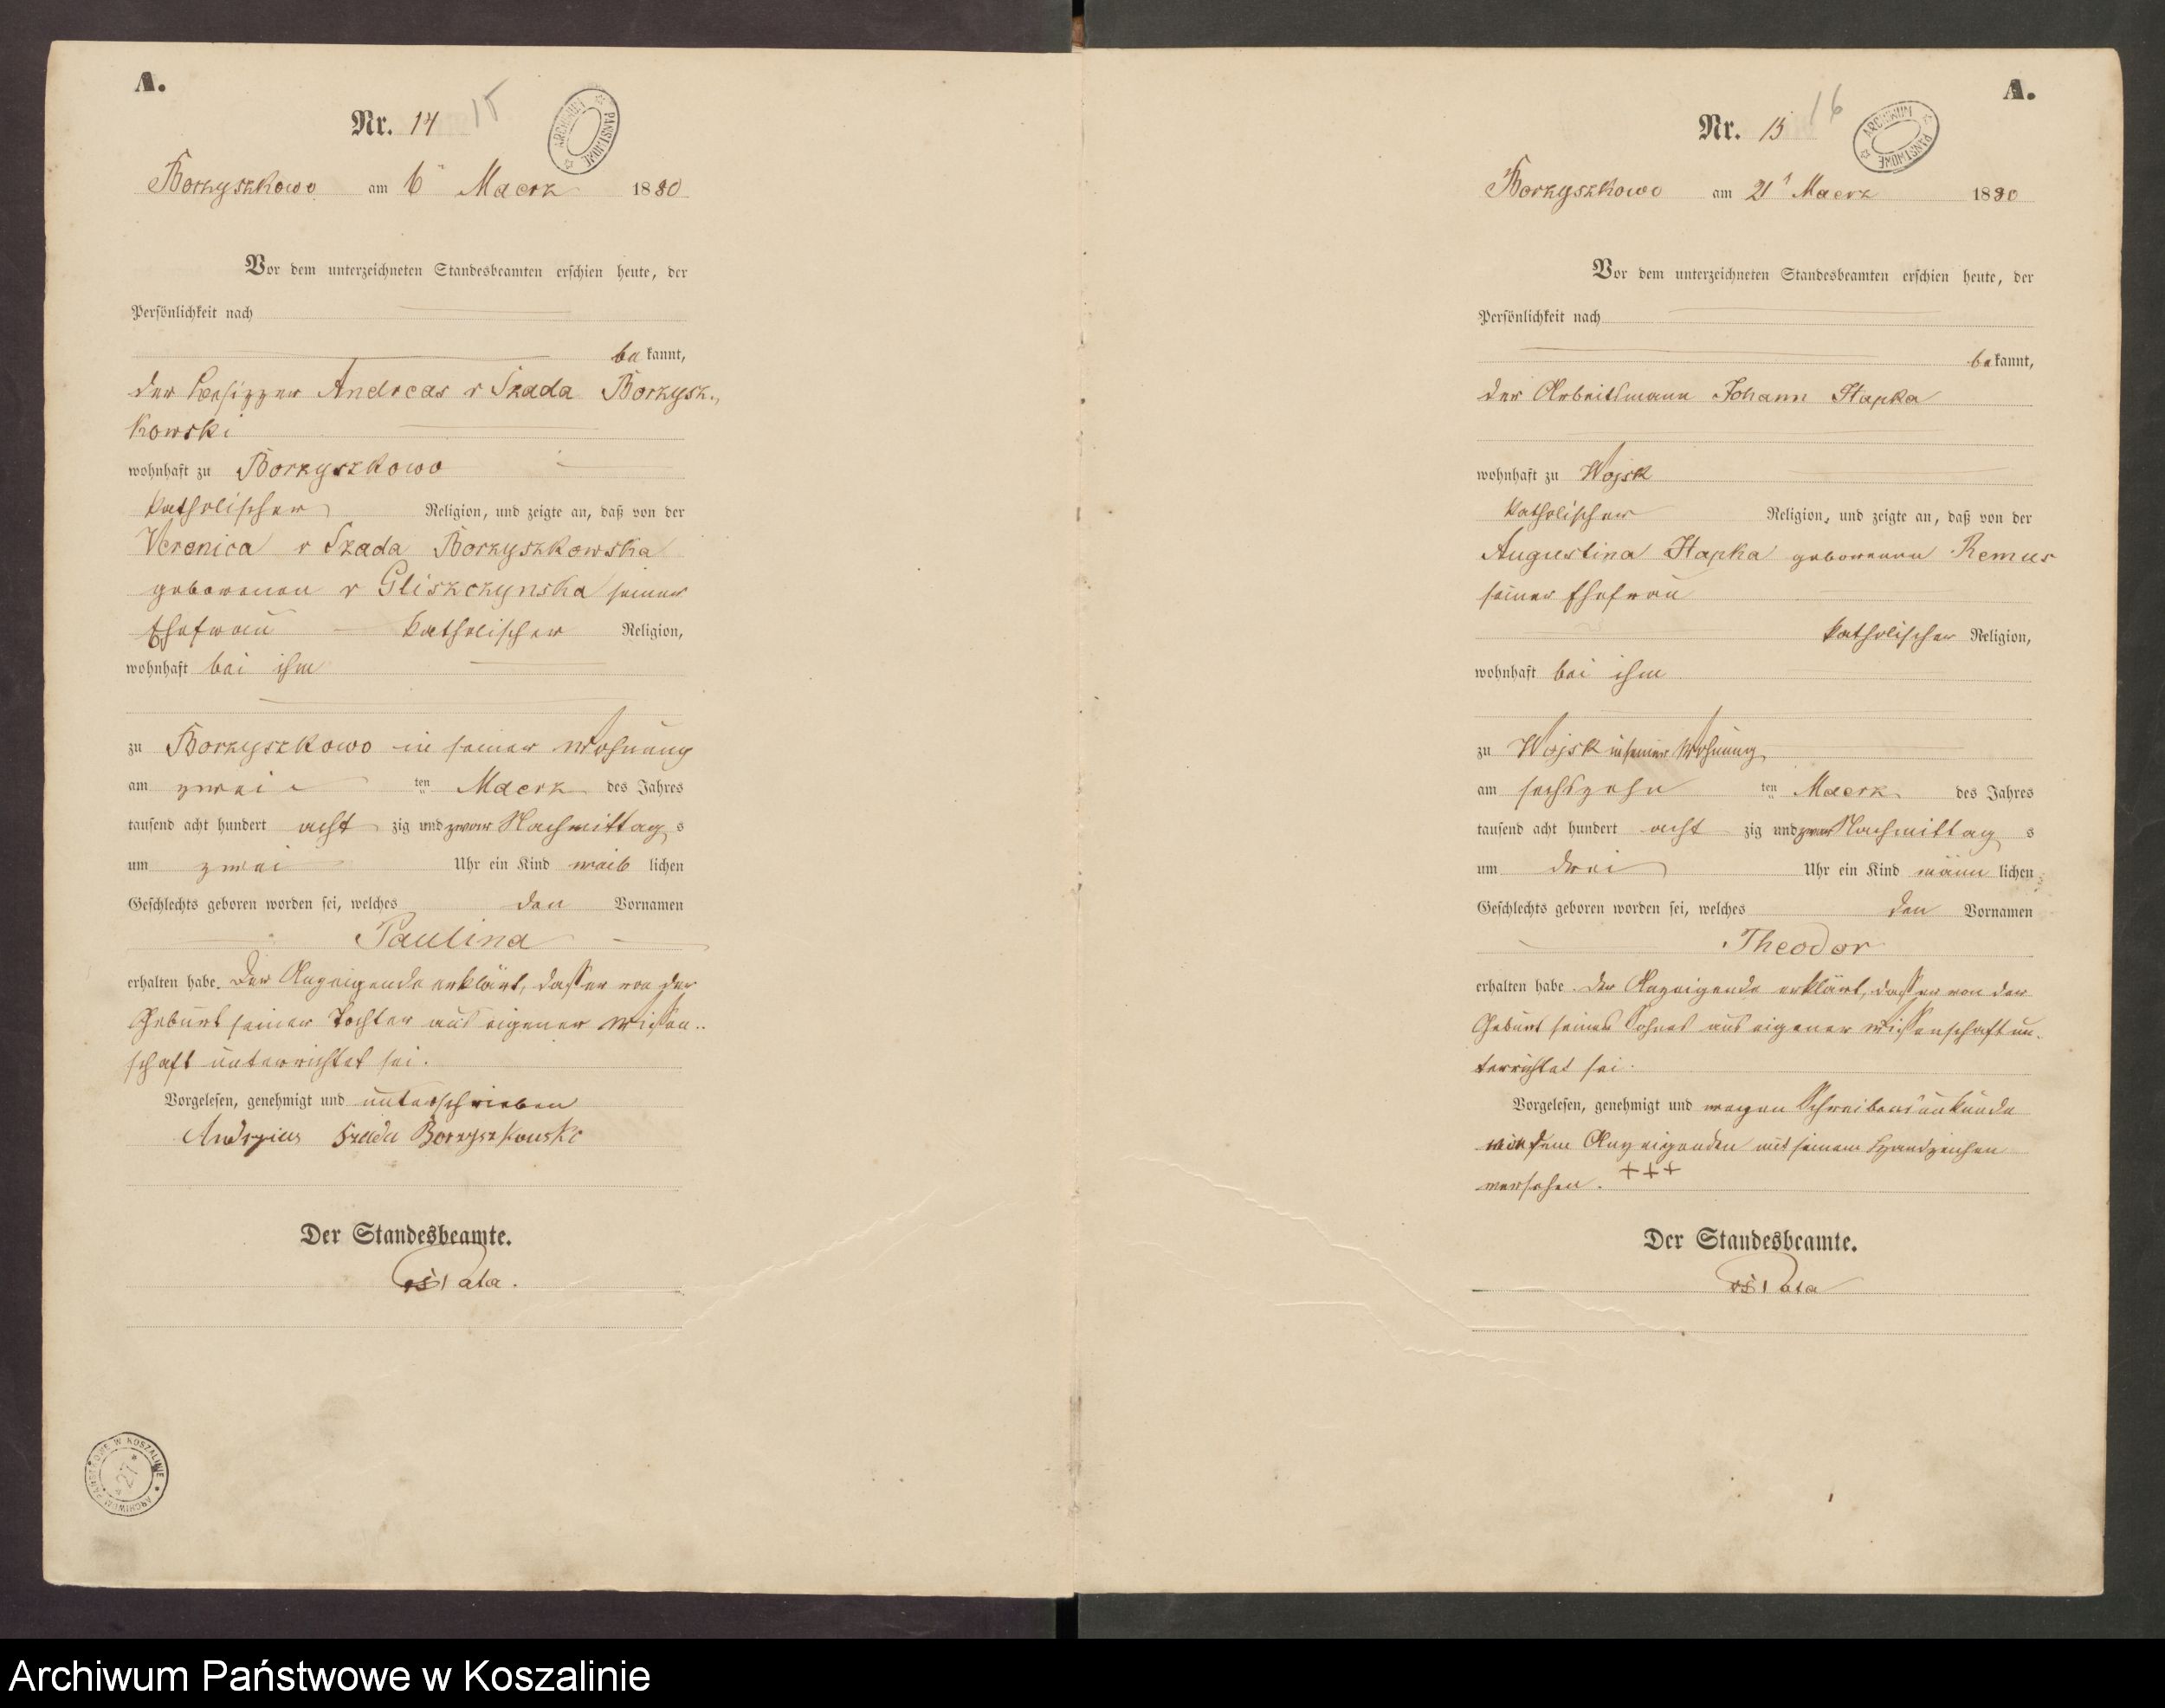 A.
Nr. 14 15
ARCHIWUM PAŃSTWOWE
Borzyszkowo am 6 Maerz 1880
Vor dem unterzeichneten Standesbeamten erschien heute, der
Persönlichkeit nach
be kannt,
der Besitzer Andreas v Szada Borzysz-
kowski
wohnhaft zu Borzyszkowo
katholischer Religion, und zeigte an, daß von der
Veronica v Szada Borzyszkowska
geborenen v Gliszczynska seiner
Ehefrau katholischer Religion,
wohnhaft bei ihm
zu Borzyszkowo in seiner Wohnung
am zwei ten Maerz des Jahres
tausend acht hundert acht zig und zwar Nachmittag s
um zwei Uhr ein Kind weib lichen
Geschlechts geboren worden sei, welches den Vornamen
Paulina
erhalten habe. Der Anzeigende erklärt, dass er von der
Geburt seiner Tochter aus eigener Wissen-
schaft unterrichtet sei.
Vorgelesen, genehmigt und unterschrieben
Szada Borzyszkowski
Der Standesbeamte.
ARCHIWUM PAŃSTWOWE W KOSZALINIE
27
A.
Nr. 15 16
ARCHIWUM PAŃSTWOWE
Borzyszkowo am 21 Maerz 1880
Vor dem unterzeichneten Standesbeamten erschien heute, der
Persönlichkeit nach
be kannt,
der Arbeitsmann Johann Hapka
wohnhaft zu Wojsk
katholischer Religion, und zeigte an, daß von der
Augustina Hapka geborenen Remus
seiner Ehefrau
katholischer Religion,
wohnhaft bei ihm
zu Wojsk in seiner Wohnung
am sechszehn ten Maerz des Jahres
tausend acht hundert acht zig und zwar Nachmittag s
um drei Uhr ein Kind männ lichen
Geschlechts geboren worden sei, welches den Vornamen
Theodor
erhalten habe. Der Anzeigende erklärt, dass er von der
Geburt seines Sohnes aus eigener Wissenschaft un-
terrichtet sei.
Vorgelesen, genehmigt und wegen Schreibensunkunde
von dem Anzeigenden mit seinem Handzeichen
versehen. +++
Der Standesbeamte.
Archiwum Państwowe w Koszalinie